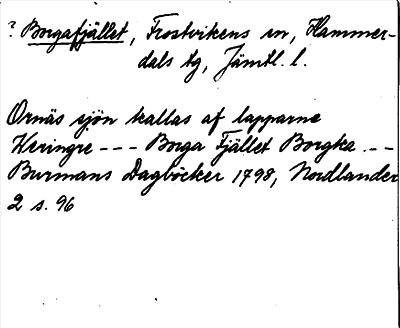 ? Borgafjället, Frostvikens sn, Hammer-
dals tg, Jämtl. l.
Ornäs sjön kallas af lapparne
Keringre --- Borga Fjället Borgka.--
Burmans Dagböcker 1798, Nordlander
2 s. 96